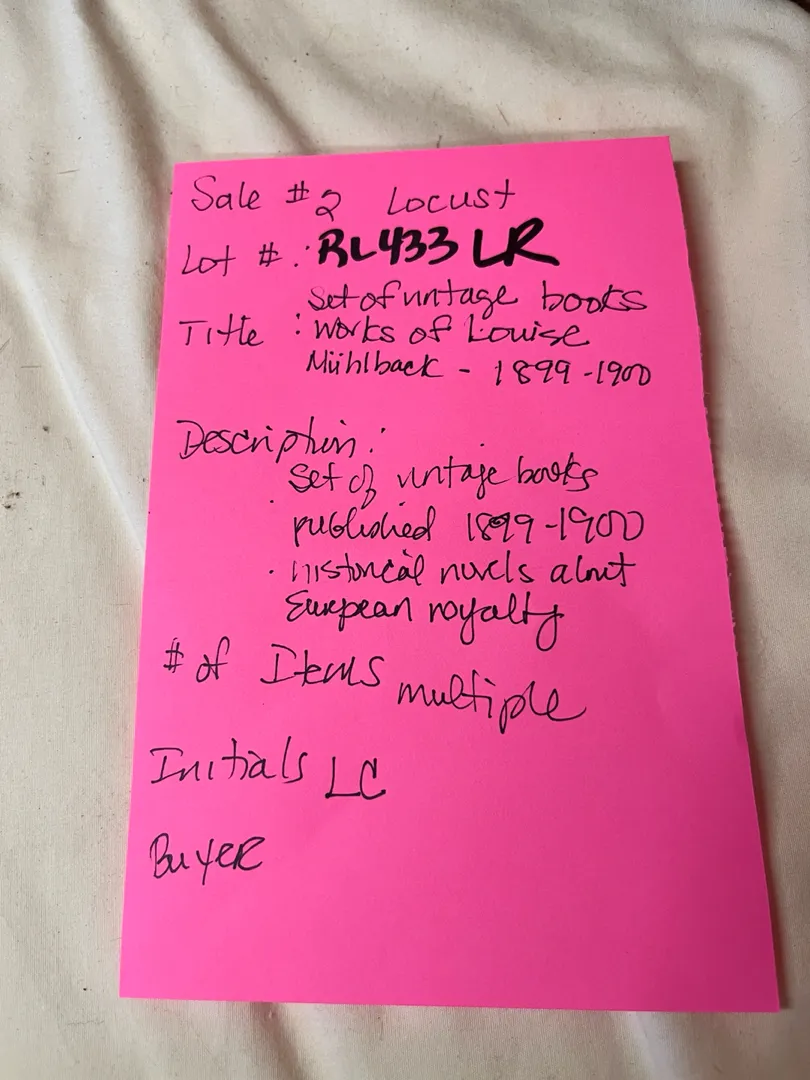 Sale #2 Locust
Lot #: RL433 LR
Set of vintage books
Title : Works of Louise
Mühlback - 1899-1900
Description:
Set of vintage books
published 1899-1900
· historical novels about
European royalty
# of Items multiple
Initials LC
Buyer